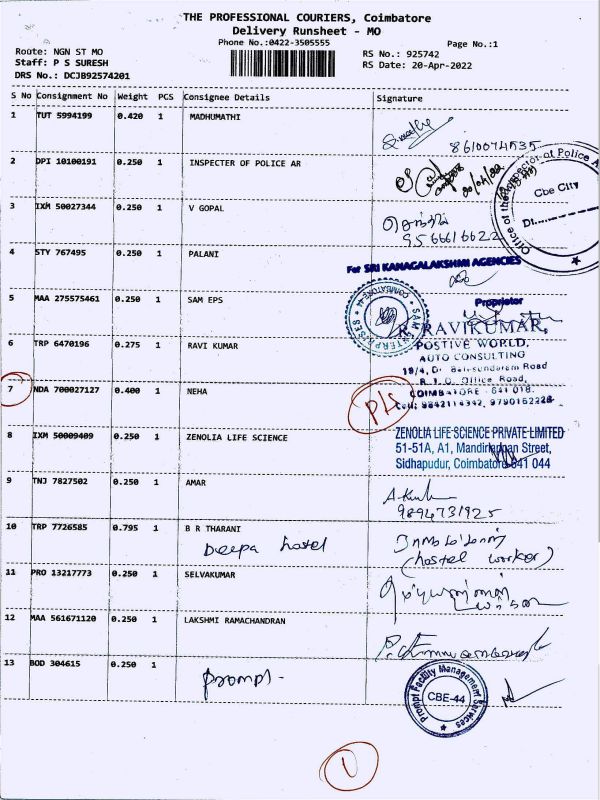 THE PROFESSIONAL COURIERS, Coimbatore
Delivery Runsheet - MO
Phone No.:0422-3505555
Page No.:1
Route: NGN ST MO
RS No.: 925742
Staff: P S SURESH
RS Date: 20-Apr-2022
DRS No.: DCJB92574201
S No Consignment No Weight PCS Consignee Details Signature
1 TUT 5994199 0.420 1 MADHUMATHI
8610074535
2 DPI 10100191 0.250 1 INSPECTER OF POLICE AR
20/04/22
Office of the Inspector of Police
Cbe City
Dt.
3 IXM 50027344 0.250 1 V GOPAL
9566616622
4 STY 767495 0.250 1 PALANI
For SRI KANAGALAKSHMI AGENCIES
Proprietor
5 MAA 275575461 0.250 1 SAM EPS
SAM ENTERPRISES
COIMBATORE-44
6 TRP 6470196 0.275 1 RAVI KUMAR
R. RAVIKUMAR,
POSTIVE WORLD.
AUTO CONSULTING
Road
R. T. O. Office Road,
COIMBATORE - 641 018.
Cell: 9842114342, 9790162228
7 NDA 700027127 0.400 1 NEHA
8 IXM 50009409 0.250 1 ZENOLIA LIFE SCIENCE
ZENOLIA LIFE SCIENCE PRIVATE LIMITED
51-51A, A1, Street,
Sidhapudur, Coimbatore 641 044
9 TNJ 7827502 0.250 1 AMAR
9894731925
10 TRP 7726585 0.795 1 B R THARANI
Deepa hostel
(hostel worker)
11 PRO 13217773 0.250 1 SELVAKUMAR
12 MAA 561671120 0.250 1 LAKSHMI RAMACHANDRAN
13 BOD 304615 0.250 1
prompt -
Prompt Facility Management Services
CBE-44